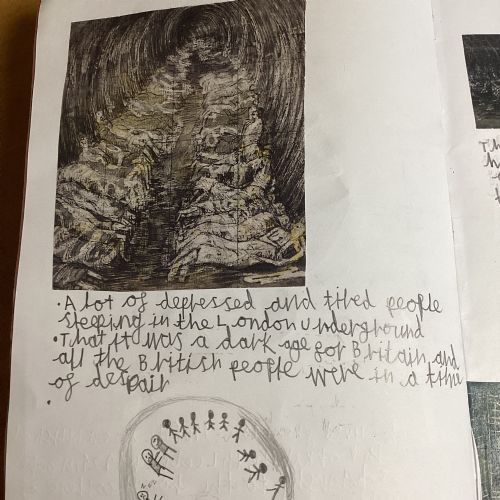 • A lot of depressed and tired people
sleeping in the London Underground
• That it was a dark age for Britain and
all the British people were in a time
of despair
•